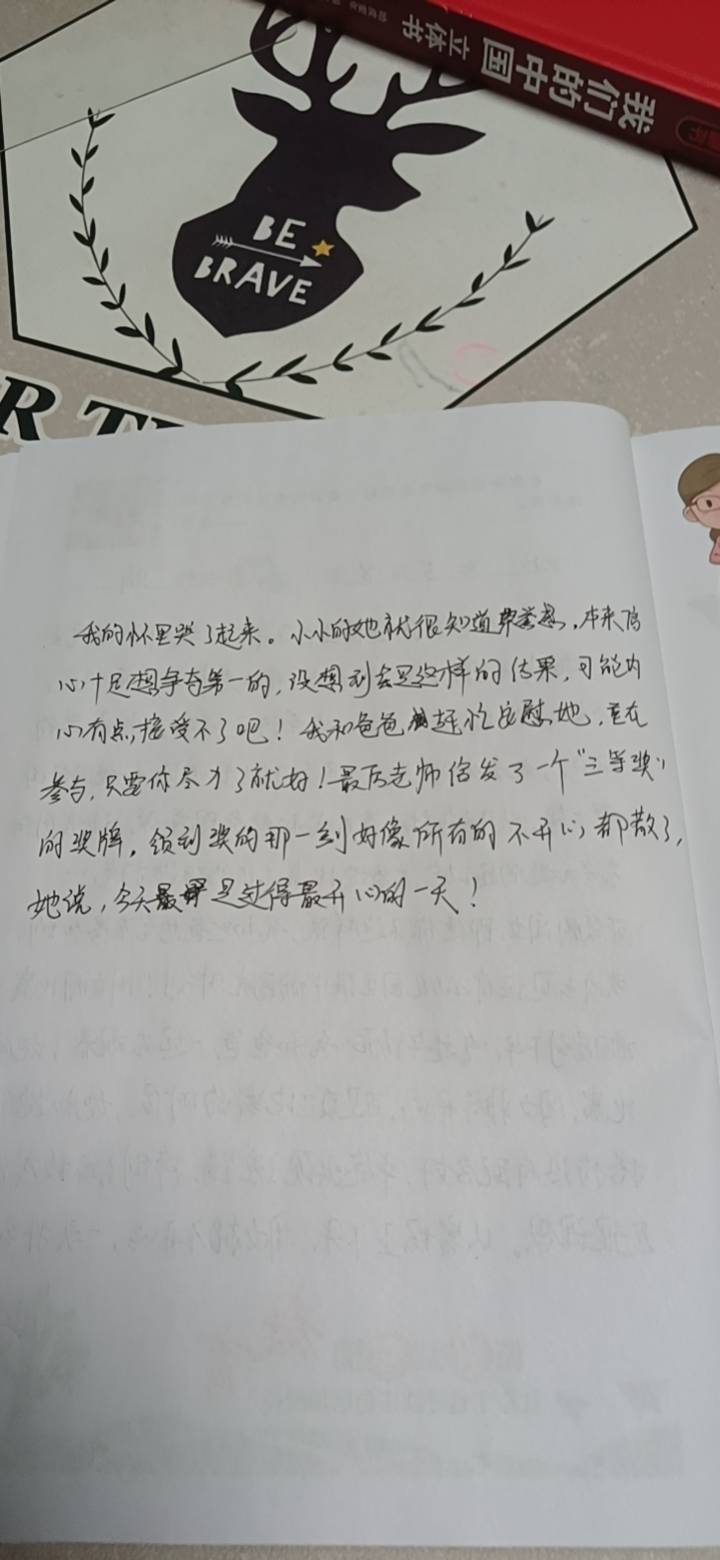 我们的中国 立体书
BE
BRAVE
R T
我的怀里哭了起来。小小的她就很知道荣誉感,本来信
心十足想争夺第一的,没想到会是这样的结果,可能内
心有点接受不了吧!我和爸爸赶忙安慰她,重在
参与,只要你尽力了就好!最后老师给发了一个“三等奖”
的奖牌,领到奖的那一刻好像所有的不开心都散了,
她说,今天是过得最开心的一天!